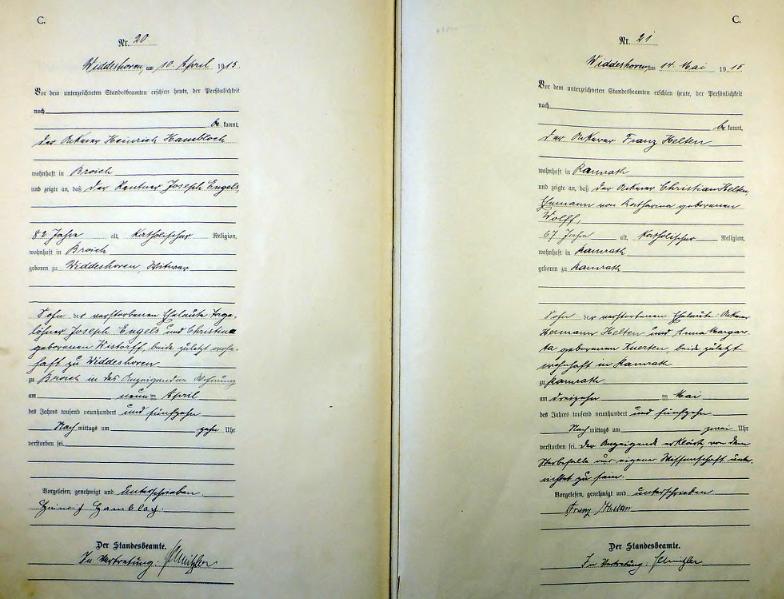 C.
Nr. 20
Widdeshoven, am 10. April 1915.
Vor dem unterzeichneten Standesbeamten erschien heute, der Persönlichkeit
nach
be kannt,
der Ackerer Heinrich Hambloch
wohnhaft in Broich
und zeigte an, daß der Rentner Joseph Engels,
82 Jahre alt, katholischer Religion,
wohnhaft in Broich
geboren zu Widdeshoven, Witwer
Sohn der verstorbenen Eheleute Tage-
löhner Joseph Engels und Christina
geborenen, beide zuletzt wohn-
haft zu Widdeshoven
zu Broich in des Anzeigenden Wohnung
am neun April
des Jahres tausend neunhundert und fünfzehn
Nach mittags um zehn Uhr
verstorben sei.
Vorgelesen, genehmigt und unterschrieben
Heinrich Hambloch
Der Standesbeamte.
In Vertretung:
C.
Nr. 21
Widdeshoven, am 14. Mai 1915.
Vor dem unterzeichneten Standesbeamten erschien heute, der Persönlichkeit
nach
be kannt,
der Ackerer Franz Helten
wohnhaft in Ramrath
und zeigte an, daß der Ackerer Christian Helten,
Ehemann von Katharina geborenen
Wolff,
67 Jahre alt, katholischer Religion,
wohnhaft in Ramrath
geboren zu Ramrath
Sohn der verstorbenen Eheleute Ackerer
Hermann Helten und Anna Margare-
ta geborenen, beide zuletzt
wohnhaft in Ramrath
zu Ramrath
am dreizehn Mai
des Jahres tausend neunhundert und fünfzehn
Nach mittags um zwei Uhr
verstorben sei. Der Anzeigende erklärte, von dem
Sterbefalle aus eigener Wissenschaft unter-
richtet zu sein.
Vorgelesen, genehmigt und unterschrieben
Franz Helten
Der Standesbeamte.
In Vertretung: